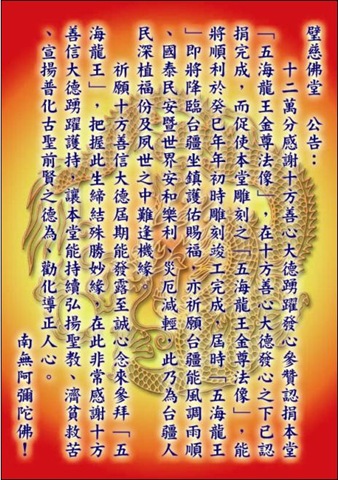 璧慈佛堂　公告：
十二萬分感謝十方善心大德踴躍發心參贊認捐本堂
「五海龍王金尊法像」，在十方善心大德發心之下已認
捐完成，而促使本堂雕刻之「五海龍王金尊法像」，能
將順利於癸巳年年初時雕刻竣工完成，屆時「五海龍王
」即將降臨台疆坐鎮護佑賜福，亦祈願台疆能風調雨順
、國泰民安暨世界安和樂利，災厄減輕，此乃為台疆人
民深植福份及夙世之中難逢機緣。
祈願十方善信大德屆期能發露至誠心念來參拜「五
海龍王」，把握此生締結殊勝妙緣，在此非常感謝十方
善信大德踴躍護持，讓本堂能持續弘揚聖教、濟貧救苦
、宣揚普化古聖前賢之德為、勸化導正人心。
南無阿彌陀佛！